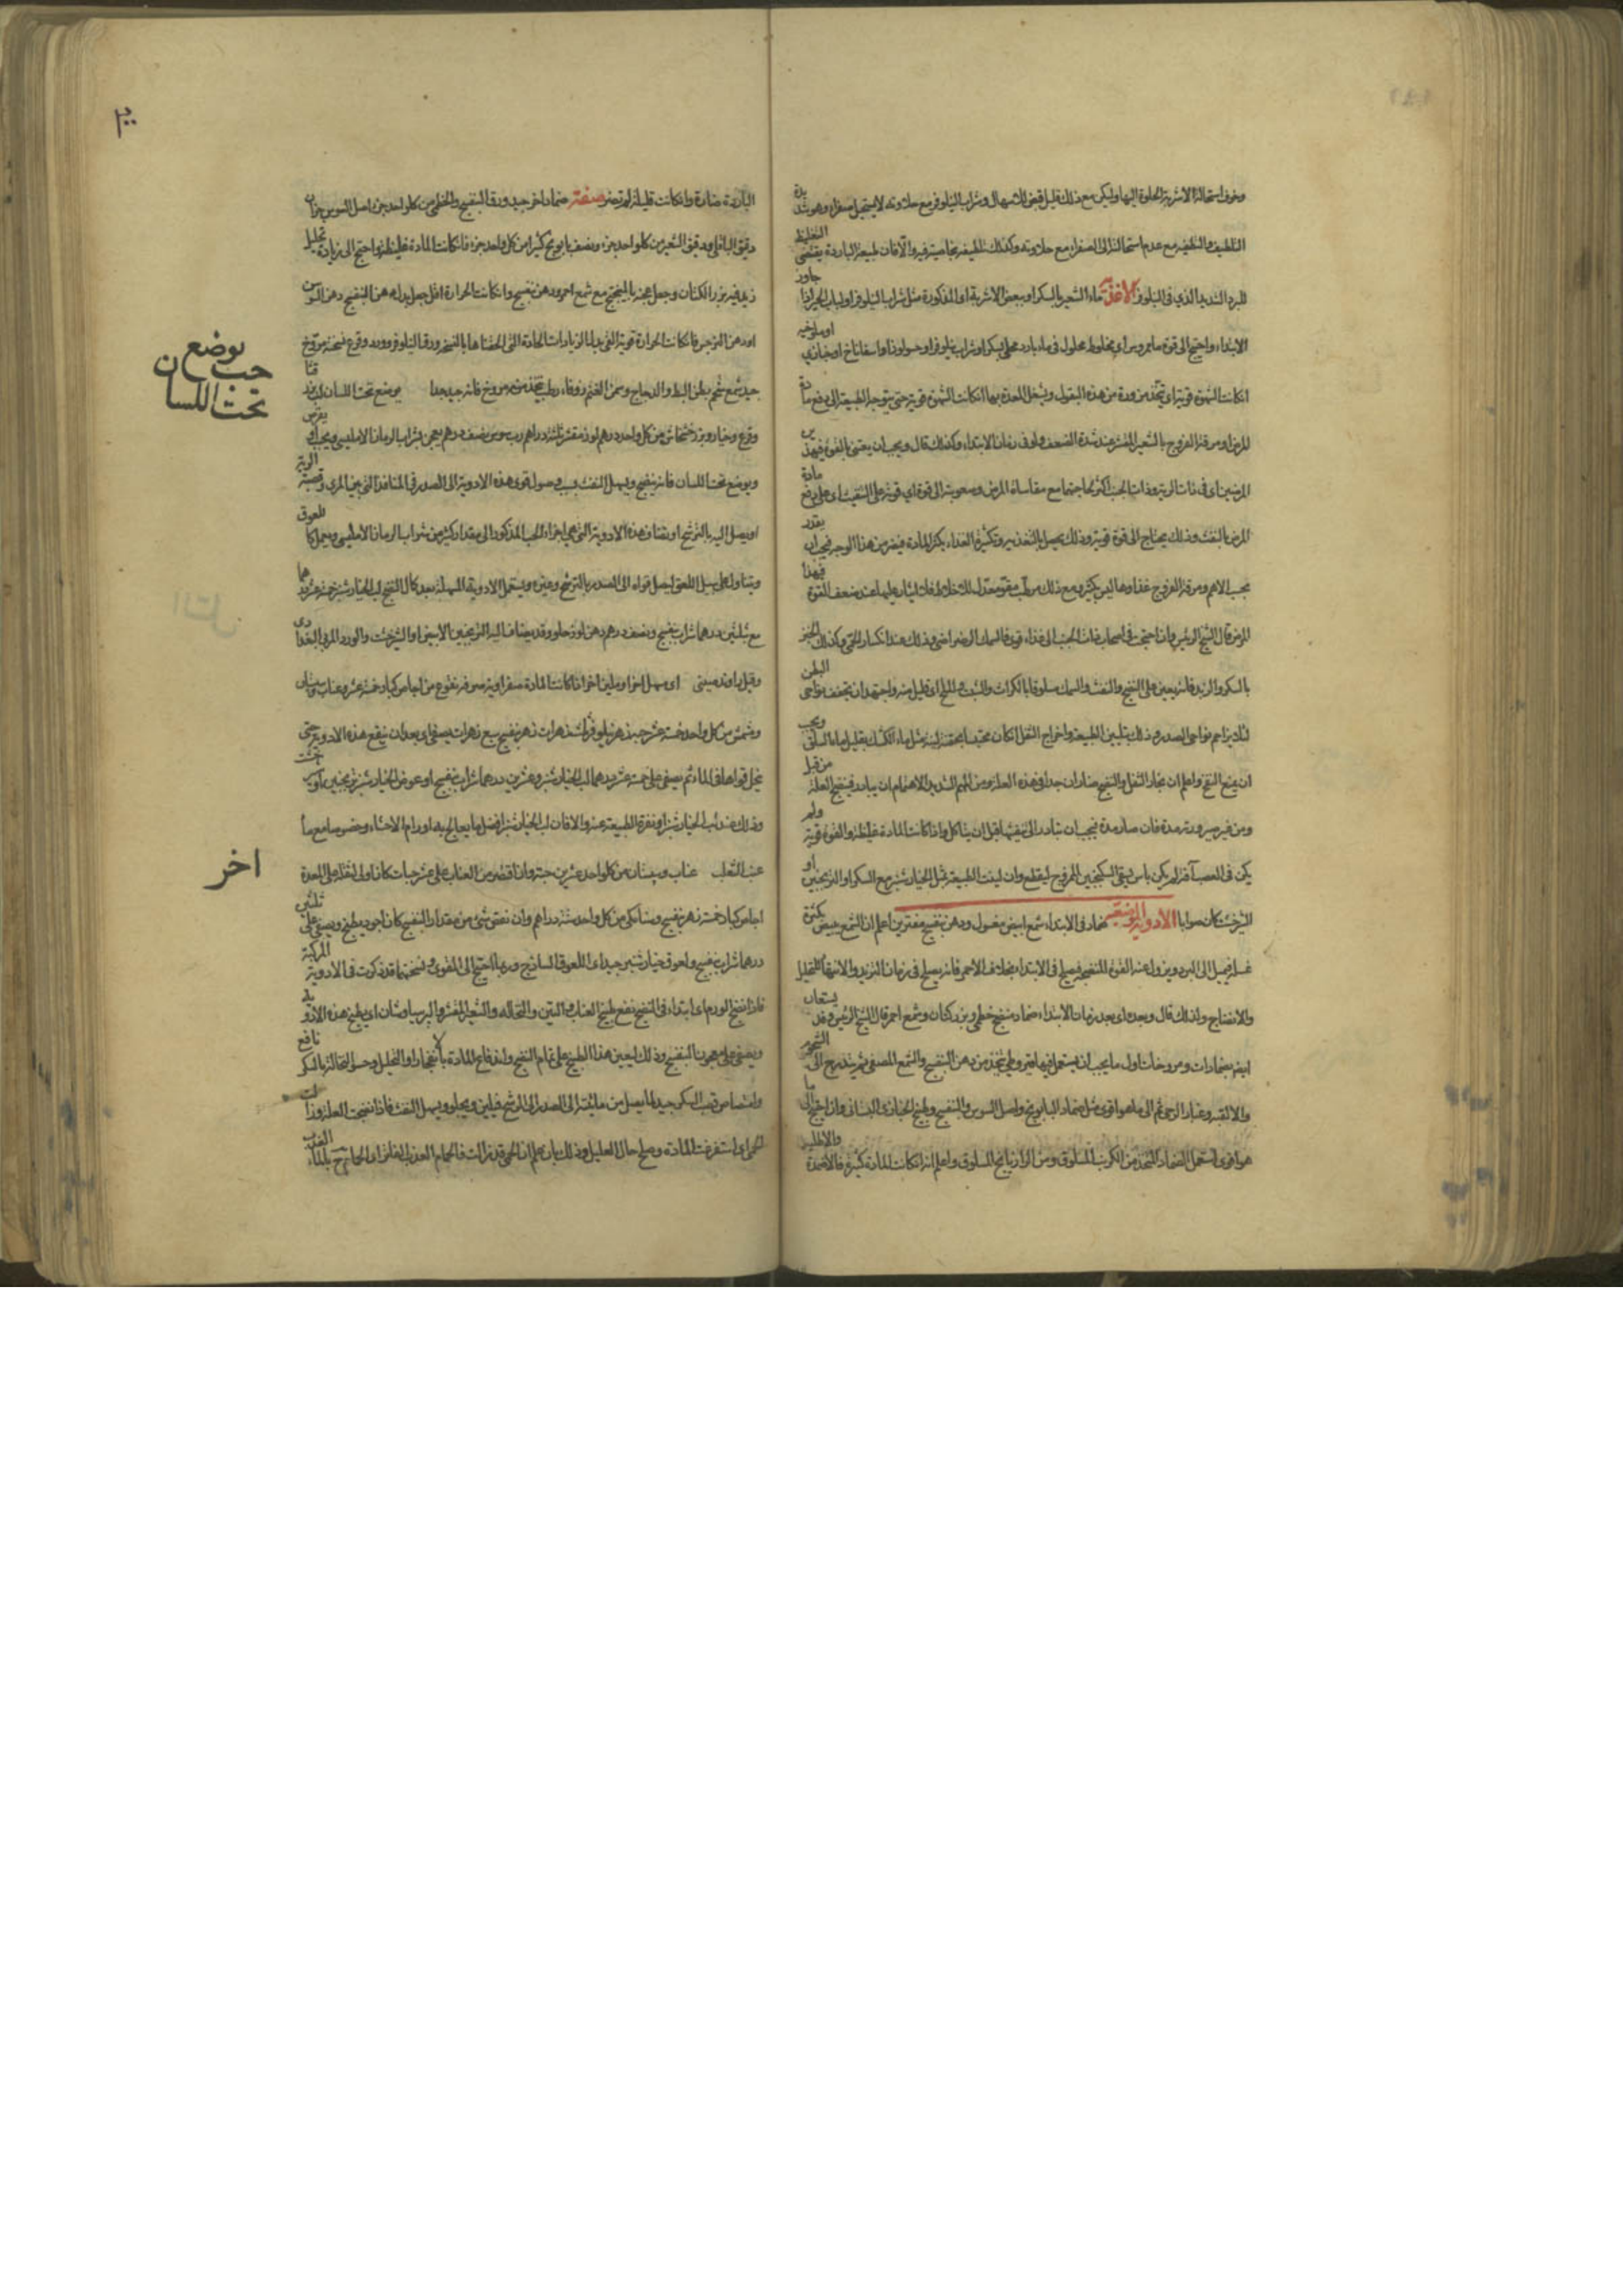 وخوف استحالة الاشربة الحلوة اليها وليكن مع ذلك قليل قبض للاسهال وشراب النيلوفر مع حلاوته لا يستحيل صفراء وهو شديد
التلطيف مع عدم استحالته الى الصفراء مع حلاوته وكذلك تلطيفه بخاصية فيه والا فان طبيعته الباردة يقتضي التغليظ
للبرد الشديد الذي في النيلوفر الاغذية ماء الشعير بالسكر او ببعض الاشربة اي المذكورة مثل شراب النيلوفر او لباب الخبز اذا جاوز
الابتداء واحتيج الى قوة ما
انكانت الشهوة قوية اي تتخذ مزورة من هذه البقول ويشغل المعدة بها انكانت الشهوة قوية حتى يتوجه الطبيعة الى دفع مادة
المرض او مرقة الفروج بالشعير المقشر عند شدة الضعف ولو في زمان الابتداء وكذلك قال ويجب ان يعتنى بالقوة في هذين
المرضين اي في ذات الرية وذات الجنب اكثر لحاجتهما مع مقاساة المرض وصعوبته الى قوة اي قوية على النفث اي على دفع مادة
المرض بالنفث وذلك يحتاج الى قوة قوية وذلك يحصل بالتغذية وتكثير الغذاء يكثر المادة فيضر من هذا الوجه فيجب ان يقدر
المرض قال الشيخ الرئيس واذا احتيج في اصحاب ذات الجنب الى غذاء قوي فالسمك الرضراضي وذلك عند انكسار الحمى وكذلك الخبز
بالسكر والزبد فانه يعين على النضج والنفث والسمك مسلوقا بالكراث والشبت والملح اي قليل منه واجتهد ان تجفف نواحي البطن
لئلا يزاحم نواحي الصدر وذلك بتليين الطبيعة واخراج الثفل انكان محتبسا بحقنة لينة مثل ماء الكشك بقليل
ان يمنع النفخ واعلم ان بخار الثفل والنفخ ضاران جدا في هذه العلة ومن المهم الشديد الاهتمام ان يبادر فينضج العلة من قبل
ومن غير صيرورته مدة فان صار مدة فيجب ان تبادر الى تنقيتها قبل ان يتاكل واذا كانت المادة غليظة والقوة قوية ولم
يكن في العصب آفة لم يكن باس بسقي السكنجبين الممزوج ليقطع وان لينت الطبيعة بمثل الخيار شنبر مع السكر او الترنجبين او
الشيرخشت كان صوابا الادوية الموضعية ضماد في الابتداء شمع ابيض مغسول ودهن بنفسج مفترين اعلم ان الشمع يبيض بكثرة
غسله فيميل الى البرد ويزول عنه القوة المنضجة فيصلح في الابتداء بخلاف الاحمر فانه يصلح في زمان التزيد والانتهاء للتحليل
والانضاج ولذلك قال وبعده اي بعد زمان الابتداء ضماد بنفسج خطمي وبزر كتان وشمع احمر قال الشيخ الرئيس وقد يستعان
ايضا بضمادات ومروخات اول ما يجب ان يستعمل فيها قيروطي متخذ من دهن البنفسج والشمع المصفى ثم يتدرج الى الشحوم
والالعبة وغبار الرحى ثم الى ما هو اقوى مثل ضماد البابونج واصل السوس والبنفسج وطبيخ الخبازي البستاني وان احتيج الى ما
هو اقوى استعمل الضماد المتخذ من الكرنب المسلوق ومن الرازيانج المسلوق واعلم انه اذا كانت المادة كثيرة فالاضمدة
٢٠٠
الباردة ضارة وان كانت قليلة لم تضر صفة ضماد اخر جيد ورق البنفسج والخطمي من كل واحد جزء اصل السوس جزان
دقيق الباقلى ودقيق الشعير من كل واحد جزء ونصف بابونج كثيرا من كل واحد جزء فان كانت المادة غليظة واحتيج الى زيادة تحليل
زيد فيه بزر الكتان وجعل عجنه بالميبختج مع شمع احمر ودهن بنفسج وان كانت الحرارة اقل جعل بدل دهن البنفسج دهن السوسن
او دهن النرجس فان كانت الحرارة قوية القي بدل الزيادات الحادة التي الحقناها بالنسخة ورق النيلوفر وورد وقرع نسخة مروخ
جيد شمع شحم بطن البط والدجاج وسمن الغنم زوفاء رطب يتخذ منه مروخ فانه جيد جدا يوضع تحت اللسان
يوضع
حب
تحت اللسان
وقرع وخيار وبزر خشخاش من كل واحد درهم لوز مقشر ثلثة دراهم رب سوس نصف درهم يعجن بشراب الرمان الامليسي ويحبب
ويوضع تحت اللسان فانه ينضج ويسهل النفث بسبب وصول قوى هذه الادوية الى الصدر في المنافذ التي بين المري وقصبة الرية
او يصل اليه بالترشح او تضاف هذه الادوية التي هي اجزاء الحب المذكور الى مقدار كثير من شراب الرمان الامليسي ويعمل كاللعوق
ويتناول على سبيل اللعق ليصل قواه الى الصدر بالترشح وغيره ويستعمل الادوية المسهلة بعد كمال النضج لب الخيار شنبر خمسة عشر درهما
مع ثلثين درهما شراب بنفسج ونصف درهم دهن لوز حلو وقد يضاف اليه الترنجبين الابيض او الشيرخشت والورد المربى البغدادي
وقيل راوند صيني اي مسهل اخر او ملين اخر اذا كانت المادة صفراوية صرفة نقوع من اجاص كبار خمسة عشر وعناب وسبستان
ومشمش من كل واحد خمسة عشر حبة زهر نيلوفر ثلث زهرات زهر بنفسج سبع زهرات يصفى اي بعد ان ينقع هذه الادوية حتى
ينحل قواها في الماء ثم يصفى على خمسة عشر درهما لب الخيار شنبر وعشرين درهما شراب بنفسج او عوض الخيار شنبر ترنجبين او شيرخشت
وذلك عند لب الخيار شنبر او نفرة الطبيعة عنه والا فان لب الخيار شنبر افضل ما يعالج به اورام الاحشاء وخصوصا مع ماء
عنب الثعلب عناب وسبستان من كل واحد عشرين حبة وان اقتصر من العناب على عشر حبات كان اولى لثقله على المعدة
اخر
اجاص كبار خمسة زهر بنفسج وسنا مكي من كل واحد ستة دراهم وان نقص شئ من مقدار البنفسج كان اجود يطبخ ويصفى على ثلثين
درهما شراب بنفسج ولعوق خيار شنبر جيد اي اللعوق الساذج وربما احتيج الى المقوى ونسختهما قد ذكرت في الادوية المركبة
فاذا نضج الورم اي ابتداء في النضج نفع طبيخ العناب والتين والنخالة والشعير المقشر والبرسياوشان اي يطبخ هذه الادوية
ويصفى على معجون البنفسج وذلك ليعين هذا الطبيخ على تمام النضج واندفاع المادة بالانفجار او التحليل وحسو النخالة بالسكر نافع
وامتصاص قصب السكر جيد لما يصل من مائيته الى الصدر بالترشح فيلين ويجلو ويسهل النفث فاذا نضجت العلة وزالت
الحمى اي استفرغت المادة وصلح حال العليل وذلك بان يعلم ان الحمى قد زالت فالحمام العذب الماء